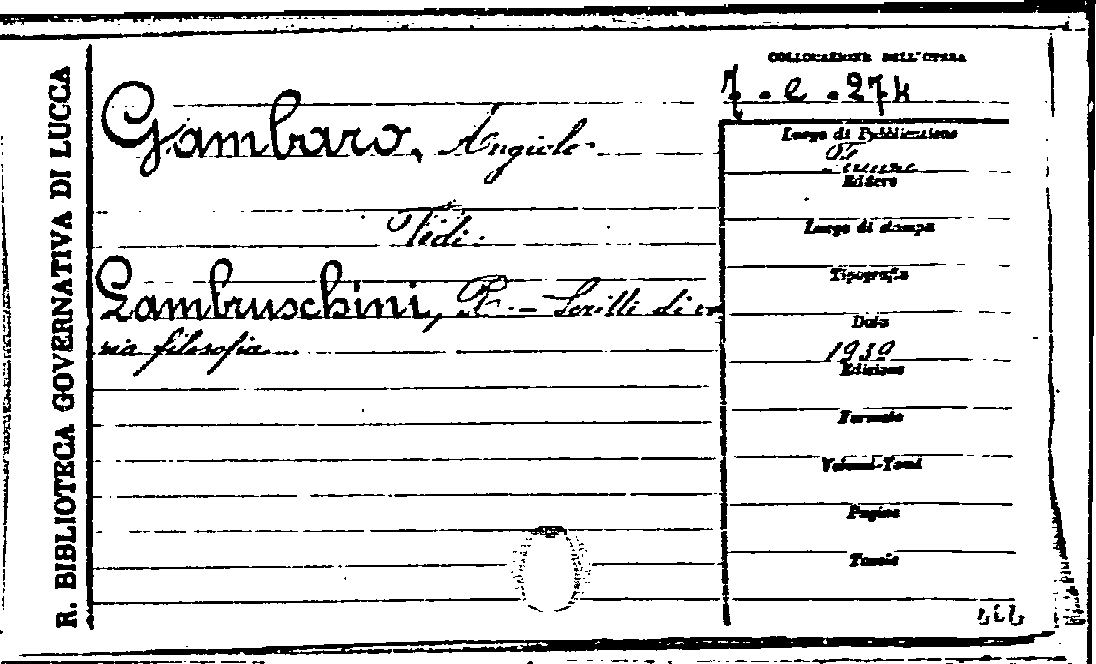 R. BIBLIOTECA GOVERNATIVA DI LUCCA
COLLOCAZIONE DELL'OPERA
7 - e - 274
Gambaro, Angiolo
Vedi:
Lambruschini, R. - Scritti di va
ria filosofia...
Luogo di Pubblicazione
Firenze
Editore
Luogo di stampa
Tipografia
Data
1939
Edizione
Formato
Volumi-Tomi
Pagine
Tavole